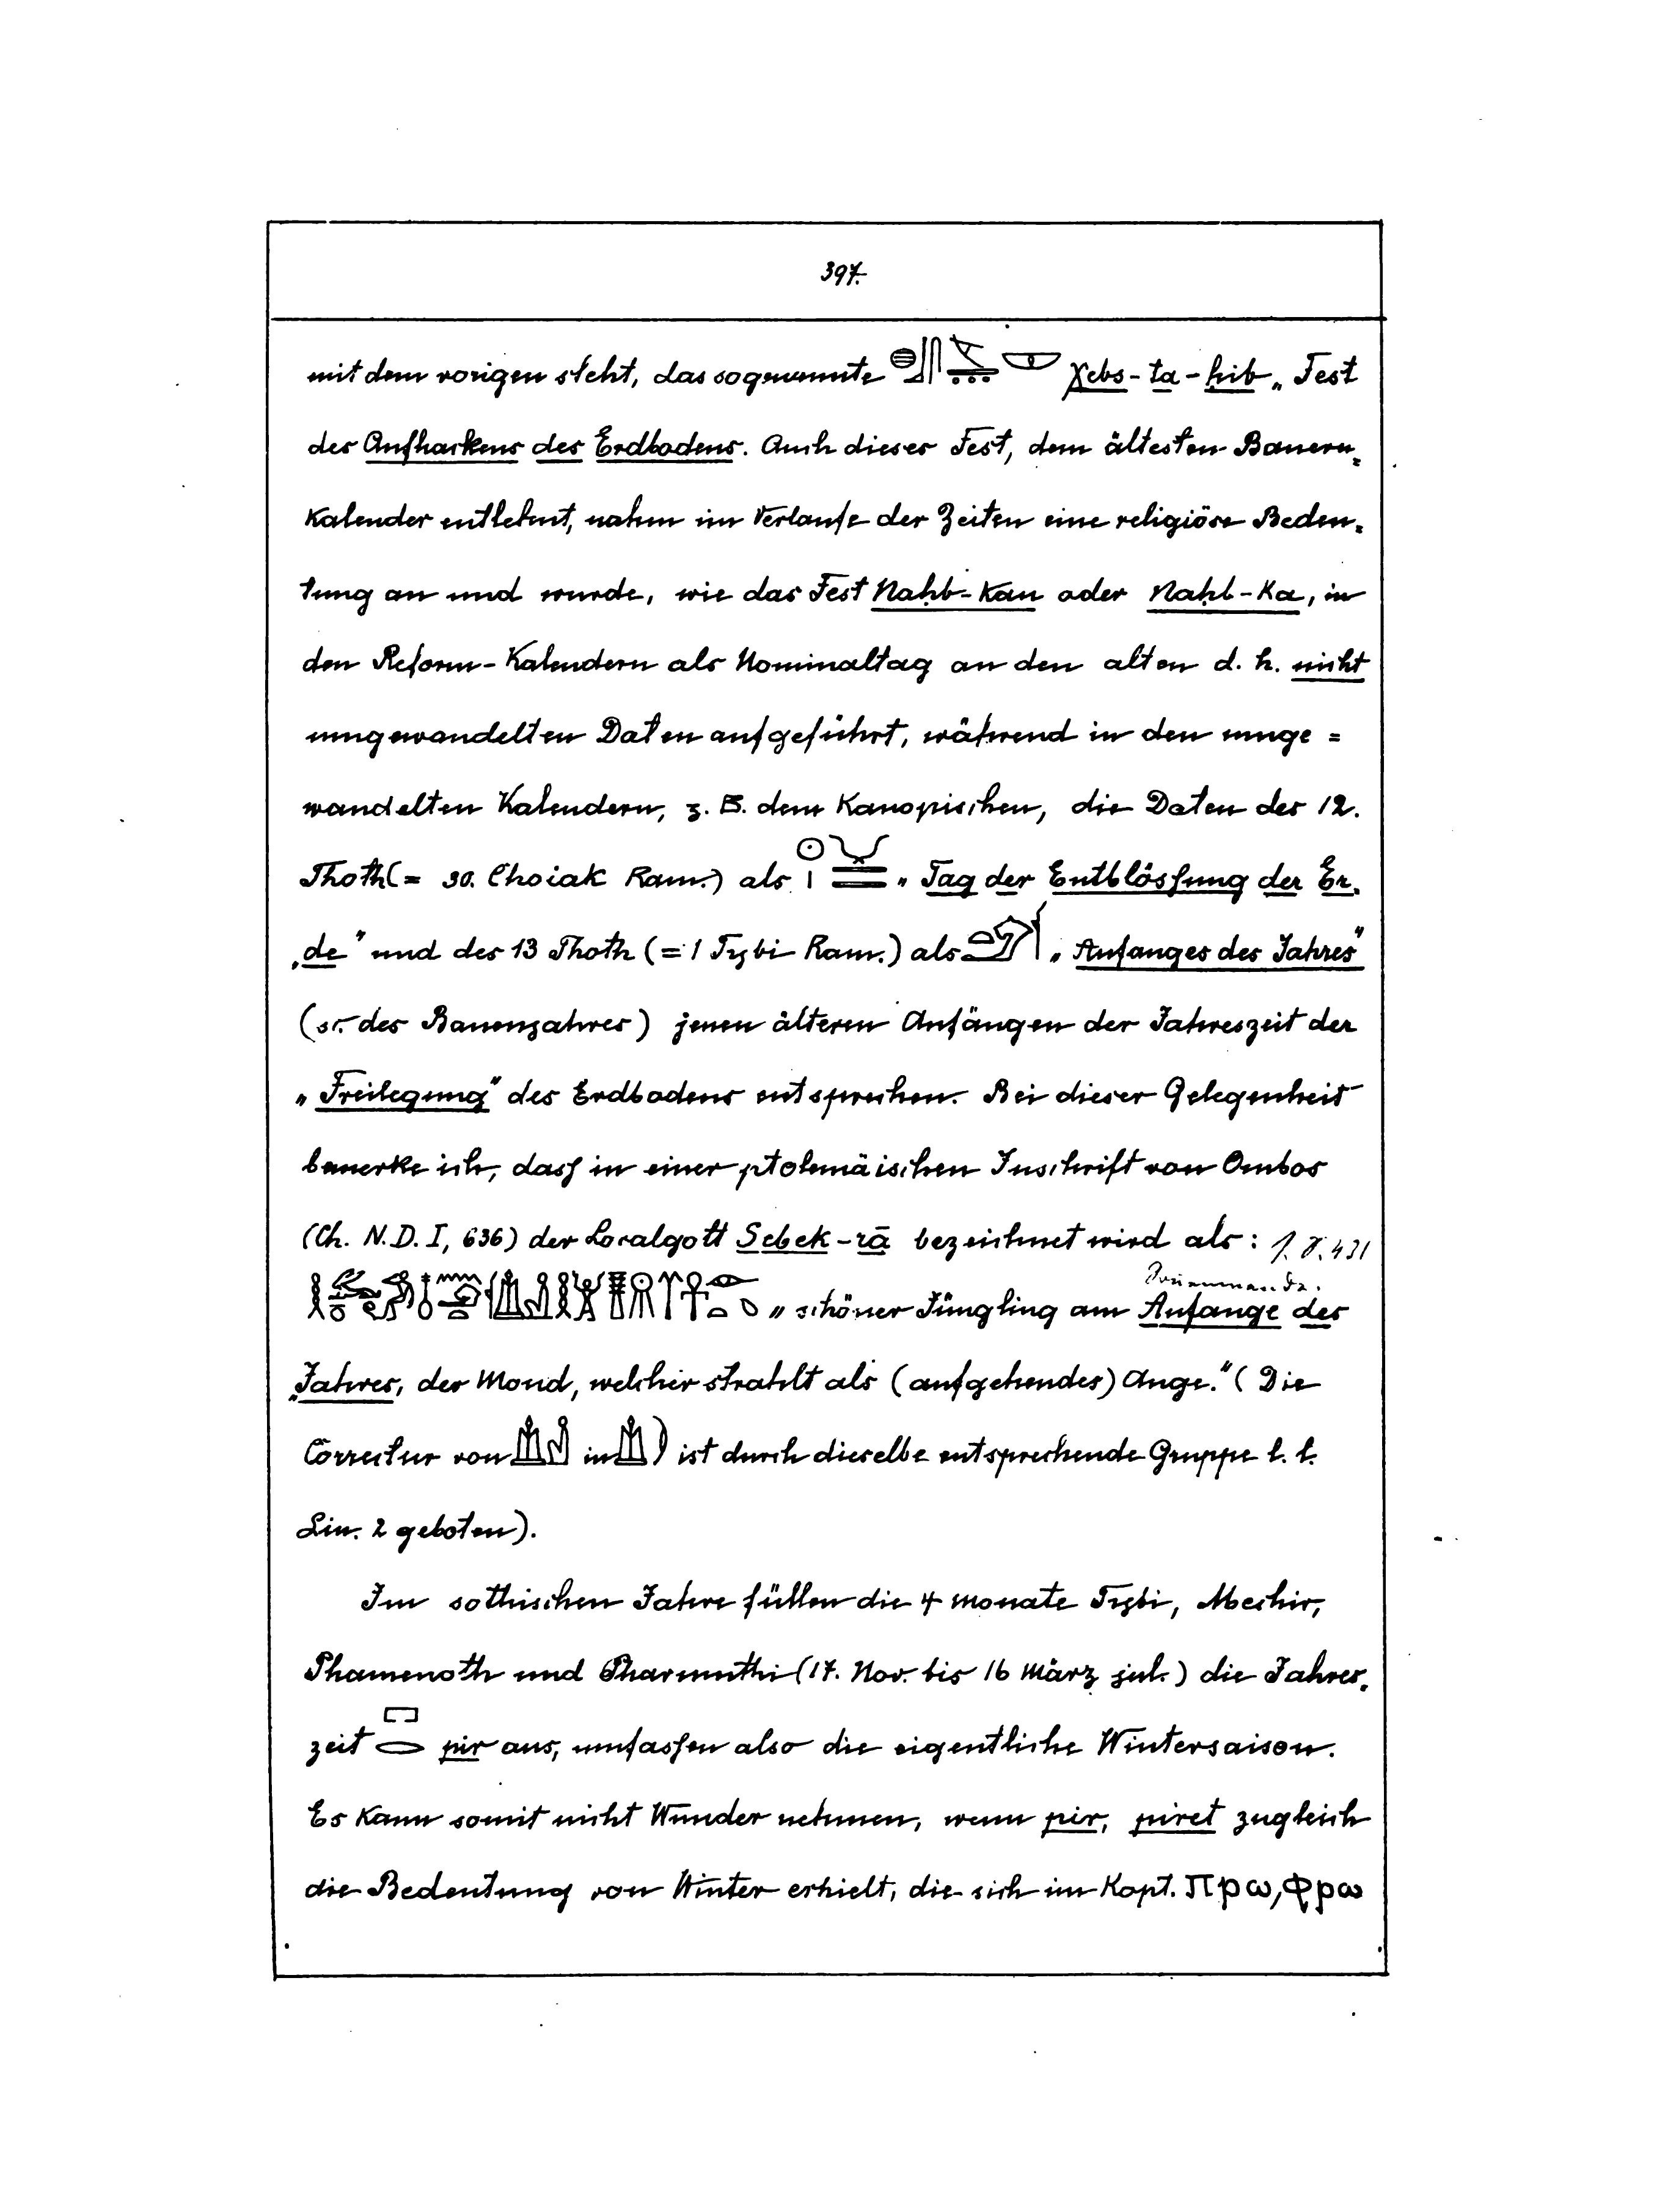 397.
mit dem vorigen steht, das sogenannte χebs-ta-ḥib „Fest
des Aufharkens des Erdbodens. Auch dieses Fest, dem ältesten Bauern-
kalender entlehnt, nahm im Verlaufe der Zeiten eine religiöse Bedeu-
tung an und wurde, wie das Fest Naḥb-kau oder Naḥb-ka, in
den Reform-Kalendern als Nominaltag an den alten d. h. nicht
umgewandelten Daten aufgeführt, während in den umge=
wandelten Kalendern, z. B. dem Kanopischen, die Daten des 12.
Thoth (= 30. Choiak Ram.) als „Tag der Entblössung der Er-
„de" und des 13 Thoth (= 1 Tybi Ram.) als „Anfanges des Jahres"
(sc. des Bauernjahres) jenen älteren Anfängen der Jahreszeit der
„Freilegung" des Erdbodens entsprechen. Bei dieser Gelegenheit
bemerke ich, dass in einer ptolemäischen Inschrift von Ombos
(Ch. N. D. I, 636) der Localgott Sebek-rā bezeichnet wird als: S. 431
„schöner Jüngling am Anfange des
„Jahres, der Mond, welcher strahlt als (aufgehendes) Auge." (Die
Correctur von in ist durch dieselbe entsprechende Gruppe l. l.
Lin. 2 geboten).
Im sothischen Jahre füllen die 4 Monate Tybi, Mechir,
Phamenoth und Pharmuthi (17. Nov. bis 16 März jul.) die Jahres-
zeit pir aus, umfassen also die eigentliche Wintersaison.
Es kann somit nicht Wunder nehmen, wenn pir, piret zugleich
die Bedeutung von Winter erhielt, die sich im Kopt. πρω, φρω